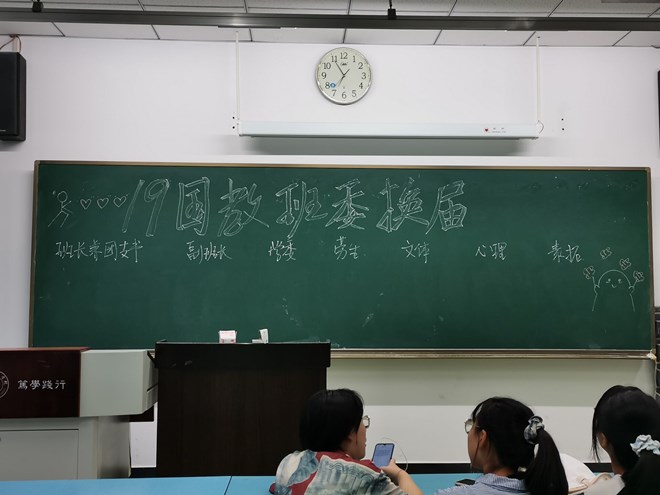 19国教班委换届
班长兼团支书 副班长 学委 劳生 文体 心理 素拓
篤學踐行